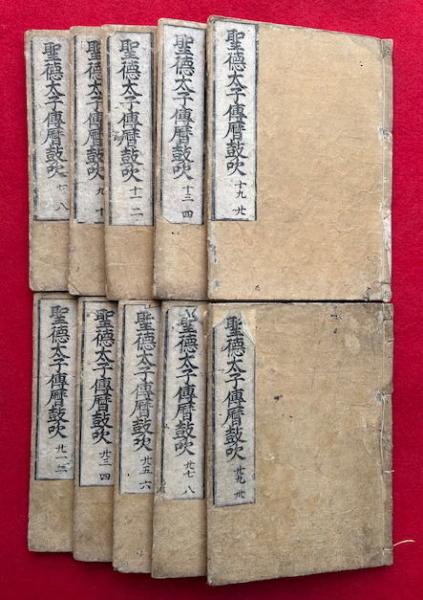 聖德太子傳曆鼓吹 七 八
聖德太子傳曆鼓吹 九 十
聖德太子傳曆鼓吹 十一 二
聖德太子傳曆鼓吹 十三 四
聖德太子傳曆鼓吹 十九 廿
聖德太子傳曆鼓吹 廿一 二
聖德太子傳曆鼓吹 廿三 四
聖德太子傳曆鼓吹 廿五 六
聖德太子傳曆鼓吹 廿七 八
聖德太子傳曆鼓吹 廿九 卅